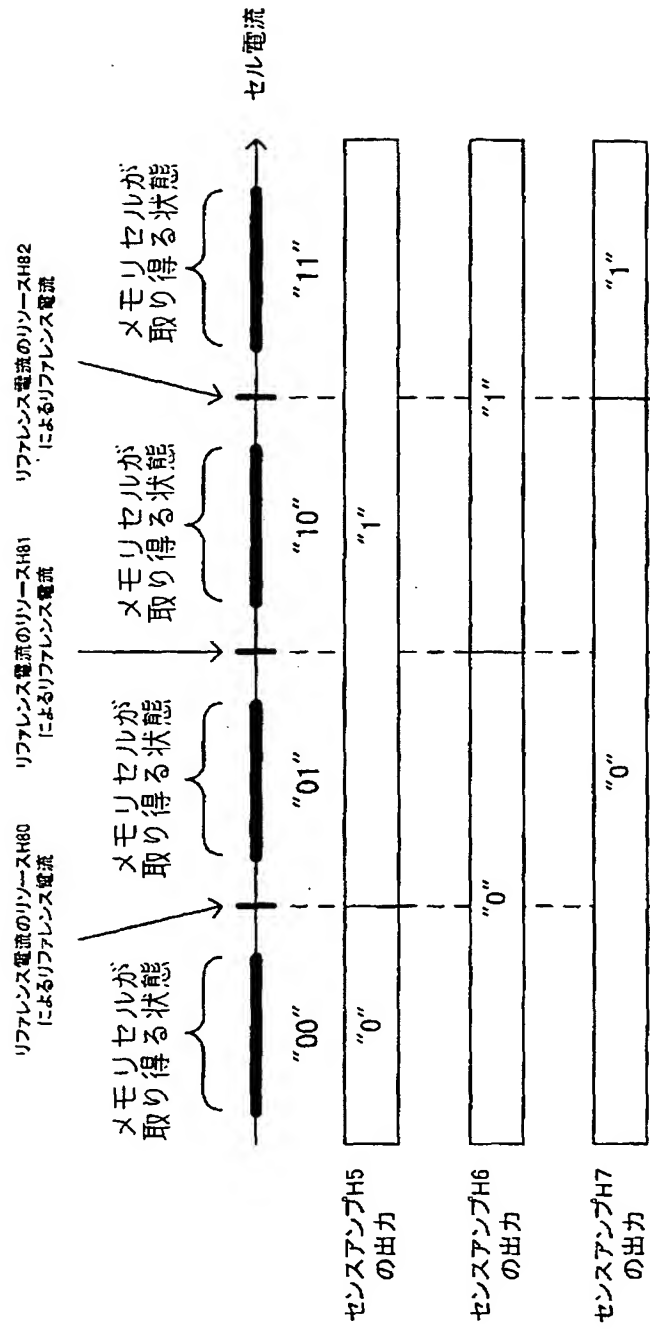 リファレンス電流のリソースH80
によるリファレンス電流
リファレンス電流のリソースH81
によるリファレンス電流
リファレンス電流のリソースH82
によるリファレンス電流
メモリセルが
取り得る状態
メモリセルが
取り得る状態
メモリセルが
取り得る状態
メモリセルが
取り得る状態
セル電流
"00"
"01"
"10"
"11"
センスアンプH5
の出力
"0"
"1"
センスアンプH6
の出力
"0"
"1"
センスアンプH7
の出力
"0"
"1"